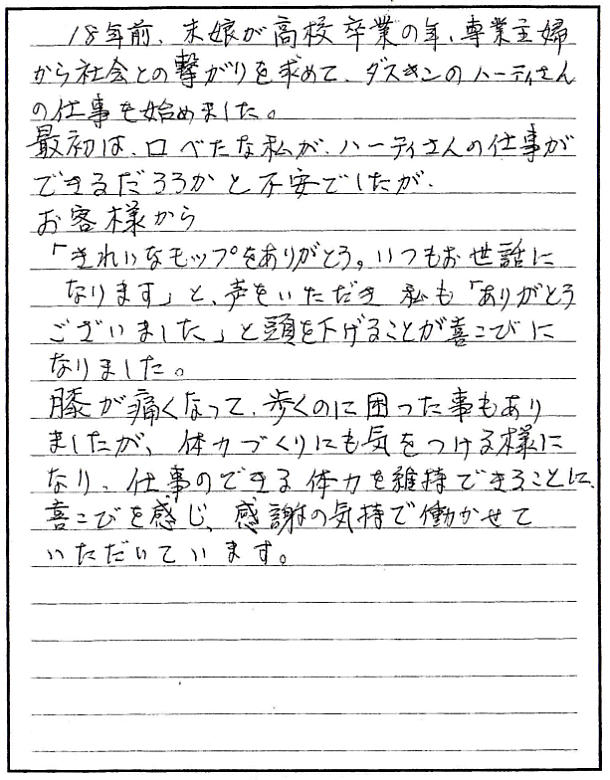 18年前、末娘が高校卒業の年、専業主婦
から社会との繋がりを求めて、ダスキンのハーティさん
の仕事を始めました。
最初は、口べたな私が、ハーティさんの仕事が
できるだろうかと不安でしたが、
お客様から
「きれいなモップをありがとう。いつもお世話に
なります」と、声をいただき 私も「ありがとう
ございました」と頭を下げることが喜こびに
なりました。
膝が痛くなって、歩くのに困った事もあり
ましたが、体力づくりにも気をつける様に
なり、仕事のできる体力を維持できることに、
喜こびを感じ、感謝の気持で働かせて
いただいています。